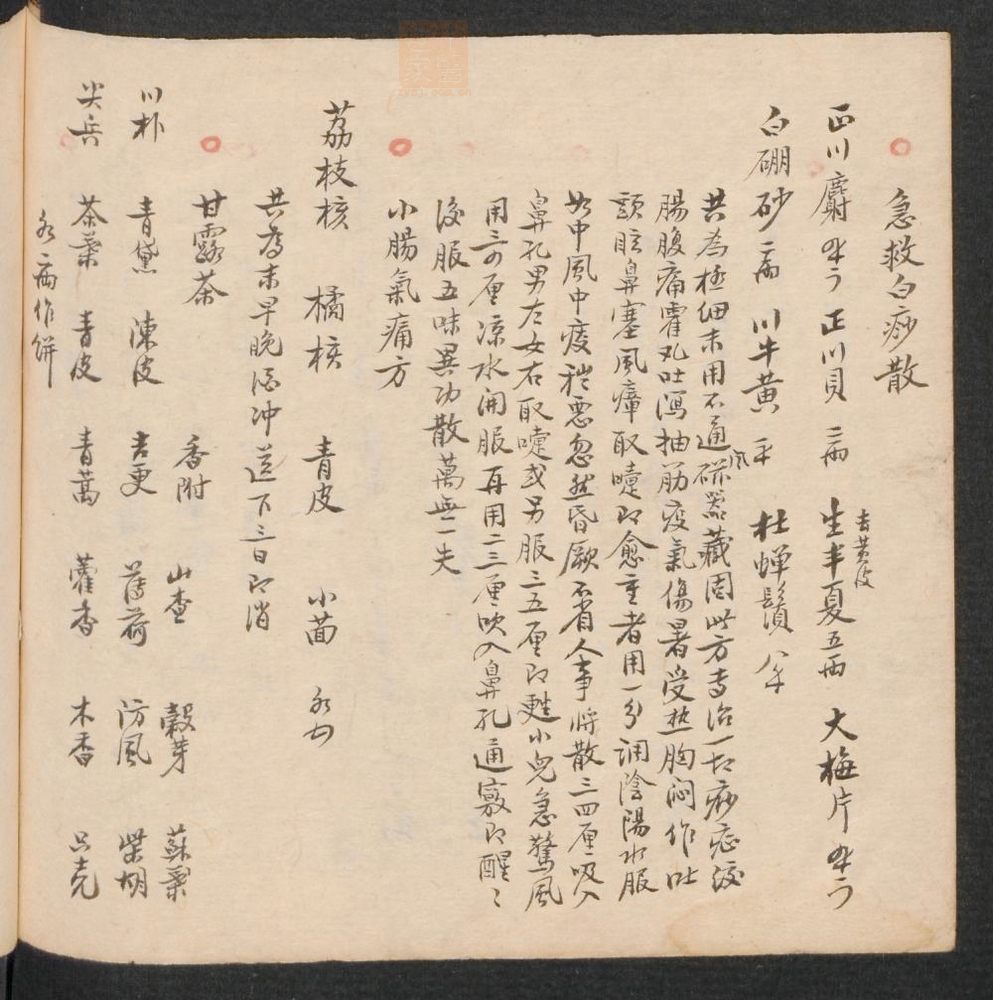 急救白痧散
正川麝 正川貝 二両 生半夏五両 去黃皮 大梅片
白硼砂 二両 川牛黃 杜蟬鬚
共為極細末用不通風磁器藏固此方専治一切痧症絞
腸腹痛霍乱吐瀉抽筋疫氣傷暑受热胸闷作吐
頭眩鼻塞風瘴取嚏即愈重者用一分調陰陽水服
如中風中痰穢惡忽然昏厥不省人事將散三四厘吸入
鼻孔男左女右取嚏或另服三五厘即甦小兒急驚風
用三四厘凉水開服再用二三厘吹入鼻孔通竅即醒〻
後服五味異功散萬無一失
小腸氣痛方
荔枝核 橘核 青皮 小茴
共為末早晚酒冲送下三日即消
甘露茶
香附 山查 穀芽 蘇葉
川朴 青黛 陳皮 吉更 薄荷 防風 柴胡
尖兵 茶葉 青皮 青蒿 藿香 木香 只壳
各二両作餅